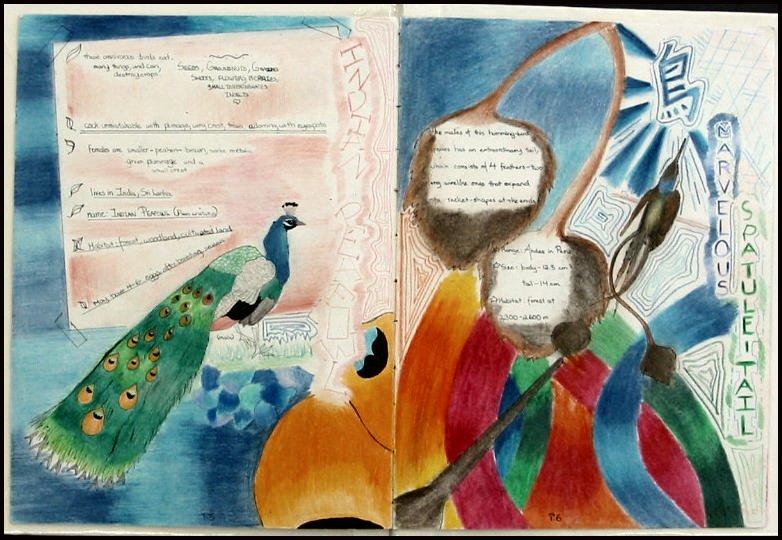 these omnivorous birds eat
many things, and can
destroy crops
SEEDS, GROUNDNUTS, GRAINS
SHOOTS, FLOWERS, BERRIES,
SMALL INVERTEBRATES
INSECTS
cock unmistakable with plumage, wiry crest, train adorning with eyespots
females are smaller-peahen- brown, some metallic
green plumage and a
small crest
lives in India, Sri Lanka
name: INDIAN PEAFOWL
Habitat: forest, woodland, cultivated land
4-6 eggs after breeding season
(male)
INDIAN PEAFOWL
P.5
The males of this humming-bird
species has an extraordinary tail,
which consists of 4 feathers-two
very wirelike ones that expand
into racket-shapes at the ends
Range: Andes in Peru
Size: body-12.5 cm
tail-14 cm
Habitat: forest at
2300-2600 m
鳥
MARVELOUS
SPATULETAIL
P.6